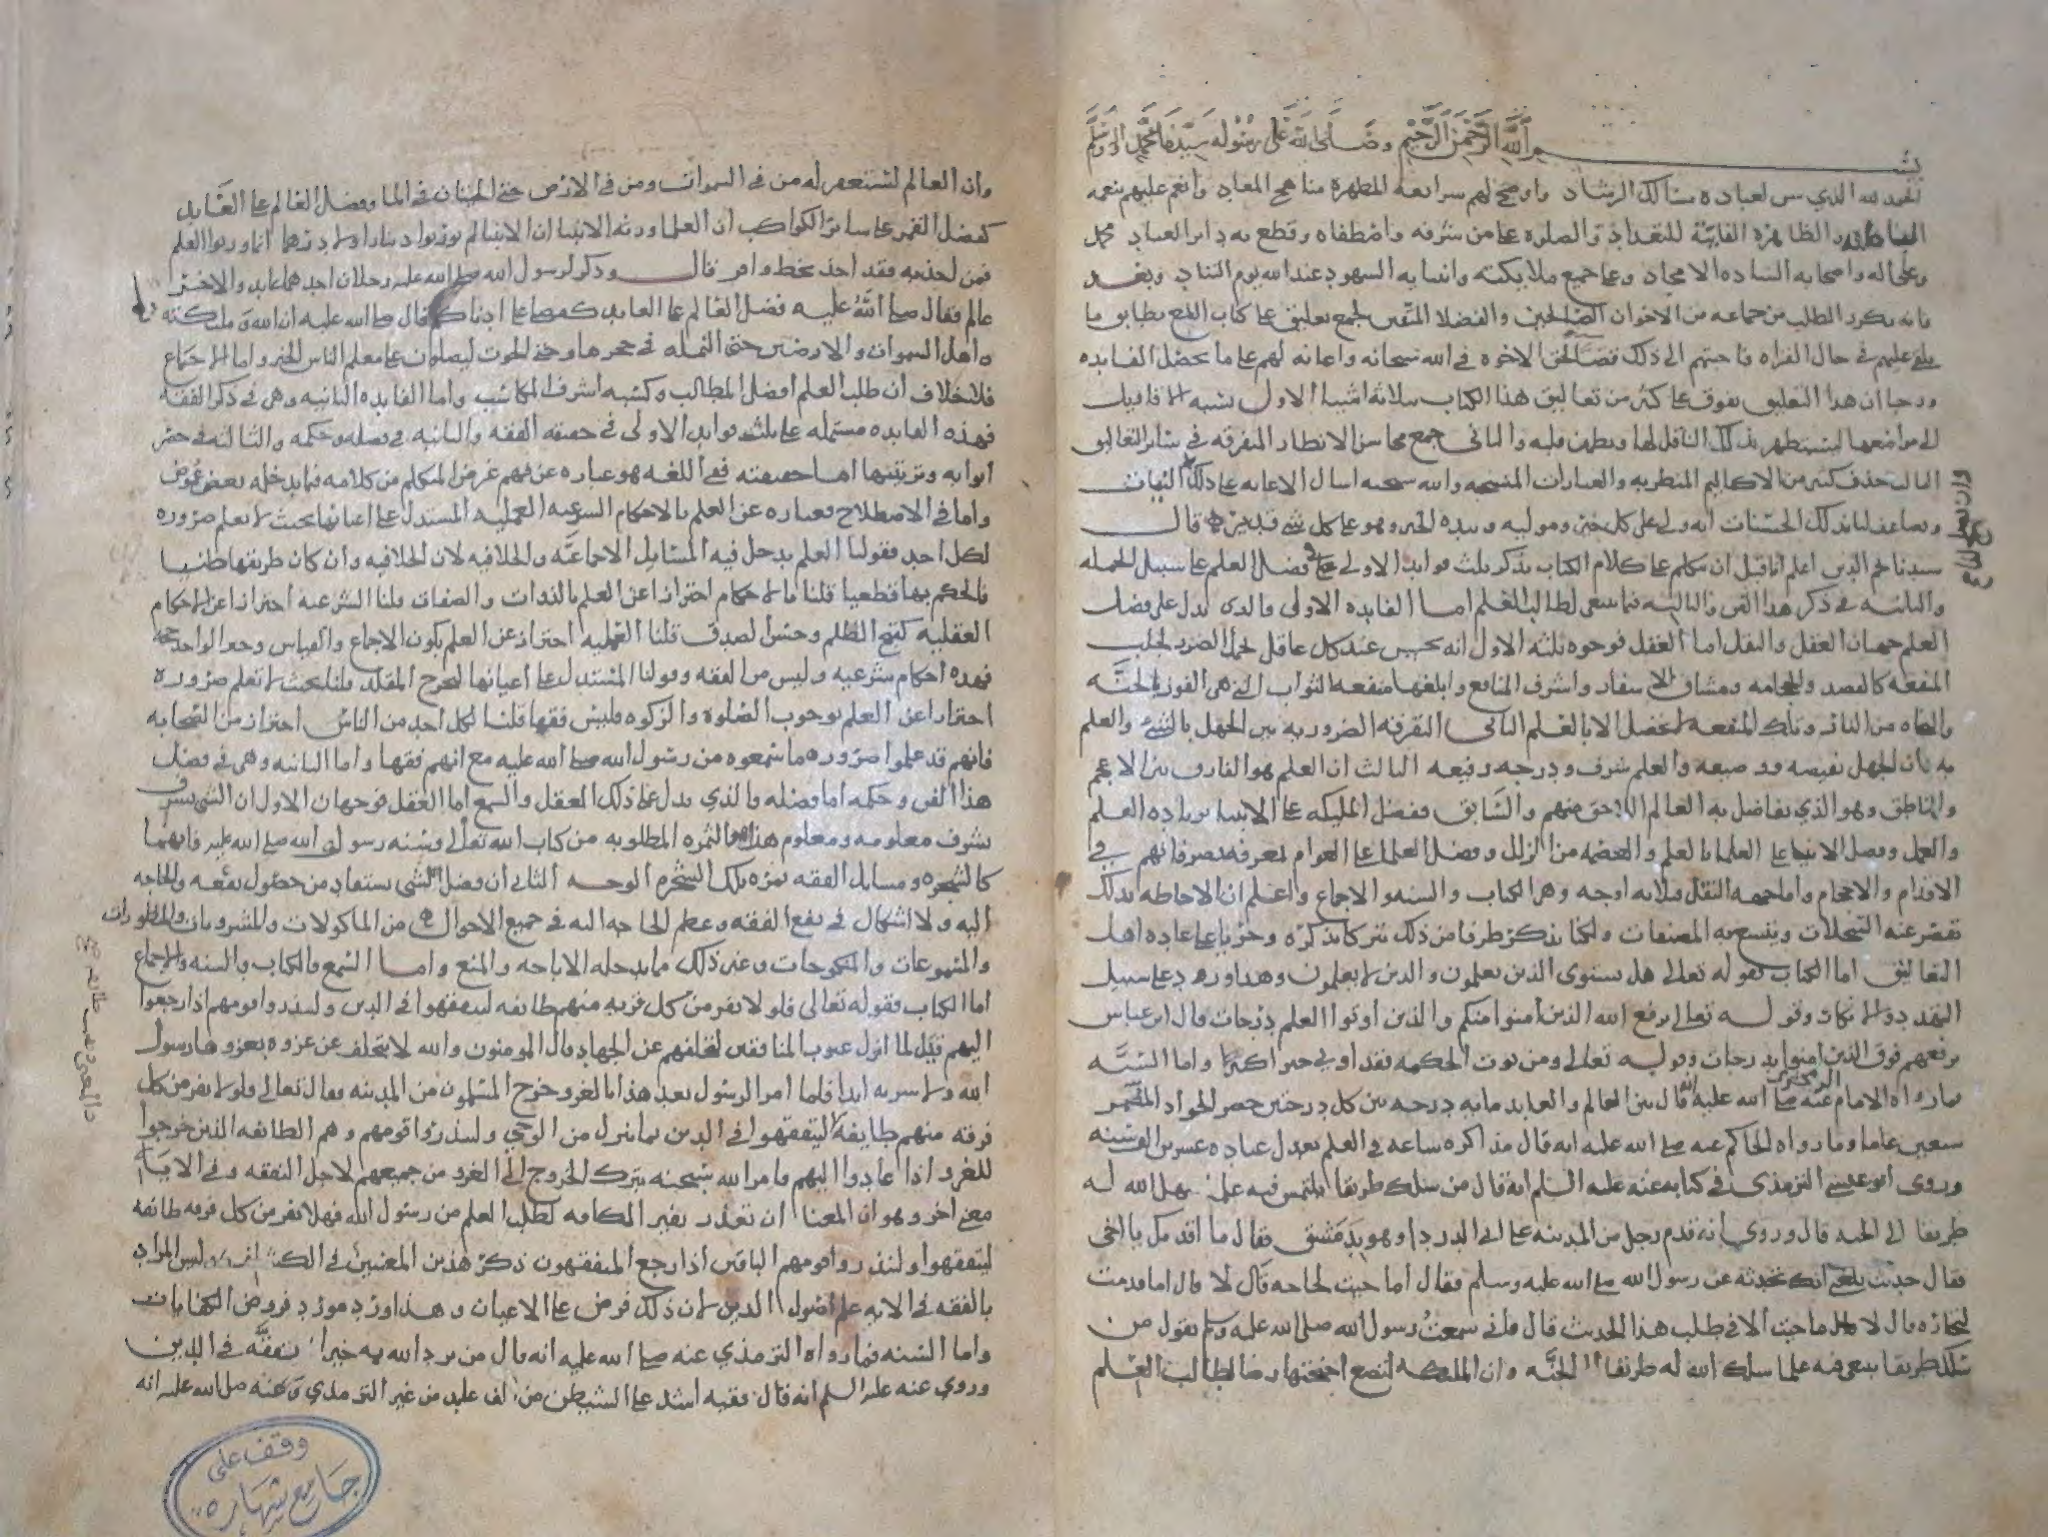 بسم الله الرحمن الرحيم وصلى الله على رسوله سيدنا محمد واله وسلم
الحمد لله الذي سن لعباده مسالك الرشاد واوضح لهم شرائعه المطهرة مناهج المعاد وانعم عليهم بنعمه
الباطنه والظاهره الفائتة للتعداد والصلوه على من شرفه واصطفاه وقطع به دابر العناد محمد
وعلى اله واصحابه الساده الامجاد وعلى جميع ملائكته وانبيائه الشهود عند الله يوم التناد وبعد
فانه تكرر الطلب من جماعه من الاخوان الصالحين والفضلا المتقين لجمع تعليق على كتاب اللمع يطابق ما
يلقى عليهم في حال القراه فاجبتهم الى ذلك قضا لحق الاخوه في الله سبحانه واعانه لهم على ما يحصل الفايده
ورجا ان هذا التعليق يفوق على كثير من تعاليق هذا الكتاب بثلاثة اشيا الاول نسبه الاقاويل
الى مواضعها ليستظهر بذلك الناقل لها ويطمئن قلبه والثاني جمع محاسن الانظار المتفرقه في سائر التعاليق
الثالث حذف كثير من الاكاليم المتطربه والعبارات المتسمجه والله سبحنه اسال الاعانه على ذلك والثبات
ويضاعف لنا بذلك الحسنات انه ولي على كل خير وموليه وبيده الخير وهو على كل شي قدير قال
سيدنا نجم الدين اعلم انا قبل ان نتكلم على كلام الكتاب نذكر ثلث فوايد الاولى في فضل العلم على سبيل الجمله
والثانيه في ذكر هذا الفن والثالثه فيما ينبغي لطالب العلم اما الفايده الاولى فالذي يدل على فضل
العلم جهتان العقل والنقل اما العقل فوجوه ثلثه الاول انه يحسن عند كل عاقل تحمل الضرر لجلب
المنفعه كالفصد والحجامه ومشاق الاسفار واشرف المنافع وابلغها منفعه الثواب التي هي الفوز بالجنه
والنجاه من النار وتلك المنفعه لا تحصل الا بالعلم الثاني التفرقه الضروريه بين الجهل بالشي والعلم
به بان الجهل نقيصه ووضيعه والعلم شرف ودرجه رفيعه الثالث ان العلم هو الفارق بين الاعجم
والناطق وهو الذي تفاضل به العالم اللاحق منهم والسابق ففضل المليكه على الانبيا بزياده العلم
والعمل وفضل الانبيا على العلما بالعلم والعصمه من الزلل وفضل العلما على العوام لمعرفه تصرفاتهم في
الاقدام والاحجام واما جهه النقل فثلاثه اوجه وهي الكتاب والسنه والاجماع واعلم ان الاحاطه بذلك
تقصر عنه السجلات وتتسع به المصنفات ولكنا نذكر طرفا من ذلك تبركا بذكره وجريا على عاده اهل
التعاليق اما الكتاب فقوله تعالى هل يستوي الذين يعلمون والذين لا يعلمون وهذا ورد على سبيل
التهديد والانكار وقوله تعالى يرفع الله الذين امنوا منكم والذين اوتوا العلم درجات قال ابن عباس
يرفعهم فوق الذين امنوا بدرجات وقوله تعالى ومن يوت الحكمه فقد اوتي خيرا كثيرا واما السنه
فما رواه الامام عنه صلى الله عليه انه قال بين العالم والعابد مايه درجه بين كل درجتين حضر الجواد المضمر
سبعين عاما وما رواه الحاكم عنه صلى الله عليه انه قال مذاكره ساعه في العلم تعدل عباده عشرين الف سنه
وروى ابو عيسى الترمذي في كتابه عنه عليه السلم انه قال من سلك طريقا يلتمس فيه علما سهل الله له
طريقا الى الجنه قال وروي انه قدم رجل من المدينه على ابي الدرداء وهو بدمشق فقال ما اقدمك يا اخي
فقال حديث بلغني انك تحدثه عن رسول الله صلى الله عليه وسلم فقال اما جيت لحاجه قال لا قال اما قدمت
لتجاره قال لا قال ما جيت الا في طلب هذا الحديث قال فاني سمعت رسول الله صلى الله عليه وسلم يقول من
سلك طريقا يبتغي فيه علما سلك الله له طريقا الى الجنه وان المليكه لتضع اجنحتها رضا لطالب العلم
وان العالم ليستغفر له من في السموات ومن في الارض حتى الحيتان في الما وفضل العالم على العابد
كفضل القمر على سائر الكواكب ان العلما ورثه الانبيا ان الانبيا لم يورثوا دينارا ولا درهما انما ورثوا العلم
فمن اخذ به فقد اخذ بحظ وافر قال وذكر لرسول الله صلى الله عليه رجلان احدهما عابد والاخر
عالم فقال صلى الله عليه فضل العالم على العابد كفضلي على ادناكم قال صلى الله عليه ان الله وملئكته
واهل السموات والارضين حتى النمله في جحرها وحتى الحوت ليصلون على معلم الناس الخير واما الاجماع
فلا خلاف ان طلب العلم افضل المطالب وكسبه اشرف المكاسب واما الفايده الثانيه وهي في ذكر الفقه
فهذه الفايده مشتمله على ثلث فوايد الاولى في حقيقه الفقه والثانيه في فضله وحكمه والثالثه في حصر
ابوابه وترتيبها اما حقيقته ففي اللغه هو عباره عن فهم غرض المتكلم من كلامه فيما يدخله بعض غموض
واما في الاصطلاح فعباره عن العلم بالاحكام الشرعيه العمليه المستدل على اعيانها بحيث لا تعلم ضروره
لكل احد فقولنا العلم يدخل فيه المسائل الاجماعيه والخلافيه لان الخلافيه وان كان طريقها ظنيا
فالحكم بها قطعيا قلنا بالاحكام احترازا عن العلم بالذوات والصفات قلنا الشرعيه احترازا عن الاحكام
العقليه كقبح الظلم وحسن الصدق قلنا العمليه احتراز عن العلم بكون الاجماع والقياس وخبر الواحد حجه
فهذه احكام شرعيه وليس من الفقه وقولنا المستدل على اعيانها ليخرج المقلد قلنا بحيث لا تعلم ضروره
احترازا عن العلم بوجوب الصلوة والزكوه فليس فقها قلنا لكل احد من الناس احتراز من الصحابه
فانهم قد علموا ضروره ما سمعوه من رسول الله صلى الله عليه مع انهم فقها واما الثانيه وهي في فضل
هذا الفن وحكمه اما فضله فالذي يدل على ذلك العقل والسمع اما العقل فوجهان الاول ان الشي يشرف
بشرف معلومه ومعلوم هذا هو الثمره المطلوبه من كتاب الله تعالى وسنه رسول الله صلى الله عليه فانهما
كالشجره ومسايل الفقه ثمره تلك الشجره الوجه الثاني ان فضل الشي يستفاد من حصول نفعه والحاجه
اليه ولا اشكال في نفع الفقه وعظم الحاجه اليه في جميع الاحوال من الماكولات والمشروبات والمنظورات
والمسموعات والمنكوحات وغير ذلك مما يدخله الاباحه والمنع واما السمع والكتاب والسنه والاجماع
اما الكتاب فقوله تعالى فلولا نفر من كل فرقه منهم طائفه ليتفقهوا في الدين ولينذروا قومهم اذا رجعوا
اليهم قيل لما انزل عيوب المنافقين لتخلفهم عن الجهاد قال المومنون والله لا نتخلف عن غزوه يغزوها رسول
الله ولا سريه ابدا فلما امر الرسول بعد هذا بالغزو خرج المسلمون من المدينه فقال تعالى فلولا نفر من كل
فرقه منهم طايفه ليتفقهوا في الدين بما ينزل من الوحي ولينذروا قومهم وهم الطائفه الذين خرجوا
للغزو اذا عادوا اليهم فامر الله سبحنه بترك الخروج الى الغزو من جميعهم لاجل التفقه وفي الايه
معنى اخر وهو ان المعنا ان تعذر نفير الكافه لطلب العلم من رسول الله فهلا نفر من كل فرقه طائفه
ليتفقهوا ولينذروا قومهم الباقين اذا رجع المتفقهون ذكر هذين المعنيين في الكشاف وليس المراد
بالفقه في الايه علم اصول الدين لان ذلك فرض على الاعيان وهذا ورد مورد فروض الكفايات
واما السنه فما رواه الترمذي عنه صلى الله عليه انه قال من يرد الله به خيرا يفقه في الدين
وروي عنه عليه السلم انه قال فقيه اشد على الشيطان من الف عابد من غير الترمذي وعنه صلى الله عليه انه
وقف على
جامع شهاره